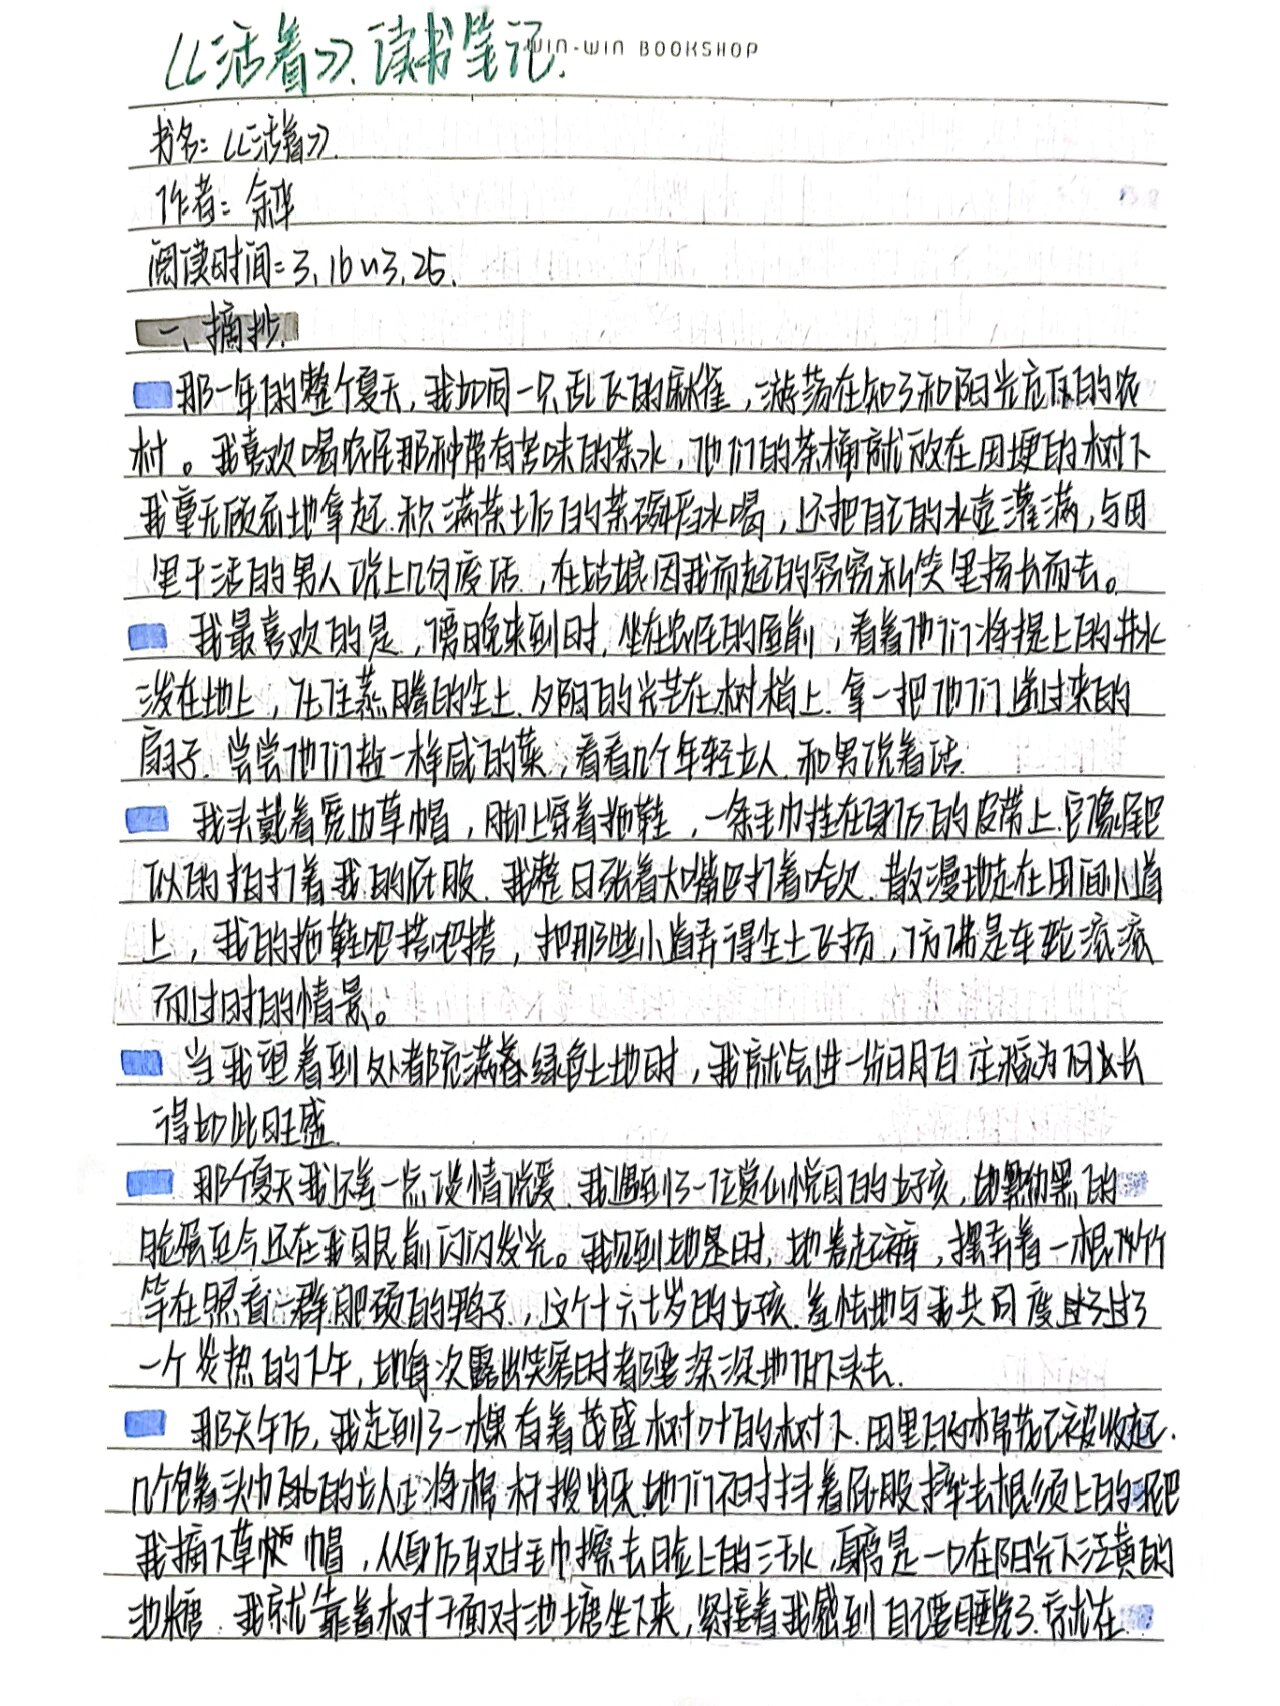 《活着》读书笔记.
WIN-WIN BOOKSHOP
书名:《活着》.
作者:余华
阅读时间:3.16~3.25.
一、摘抄.
那一年的整个夏天,我如同一只乱飞的麻雀,游荡在知了和阳光充的农
村。我喜欢喝农民那种带有苦味的茶水,他们的茶桶就放在田埂的树下
我毫无顾忌地拿起积满茶垢的茶碗舀水喝,还把自己的水壶灌满,与田
里干活的男人说上几句废话,在姑娘因我而起的窃窃私笑里扬长而去。
我最喜欢的是,傍晚来到时,坐在农民的屋前,看着他们将提上的井水
泼在地上,压住蒸腾的尘土.夕阳的光芒在树梢上.拿一把他们递过来的
扇子.尝尝他们盐一样咸的菜,看看几个年轻女人.和男说着话.
我头戴着宽边草帽,脚上穿着拖鞋,一条毛巾挂在身后的皮带上.它像尾巴
似的拍打着我的屁股.我整日张着大嘴巴打着哈欠.散漫地走在田间小道
上,我的拖鞋吧搭吧搭,把那些小道弄得尘土飞扬,仿佛是车轮滚滚
而过时的情景。
当我望着到处都充满着绿色土地时,我就会进一步明白庄稼为何会长
得如此旺盛.
那个夏天我还差一点谈情说爱.我遇到了一位赏心悦目的女孩,她黝黑的
脸蛋至今还在我眼前闪闪发光。我见到她是时,她卷起裤,摆弄着一根竹竿
等在照看一群肥硕的鸭子,这个十六七岁的女孩.羞怯地与我共同度过了
一个炎热的下午,她每次露出笑容时都要深深地低下头去.
那天午后,我走到了一棵有着茂盛树叶的树下.田里的棉花已被收起.
几个包着头巾的女人正将棉杆拔出来.她们不时抖着屁股摔去根须上的泥巴
我摘下草帽,从身后取过毛巾擦去脸上的汗水,身旁是一口在阳光下泛黄的
池塘.我就靠着树干面对池塘坐下来,紧接着我感到自己要睡觉了.就在